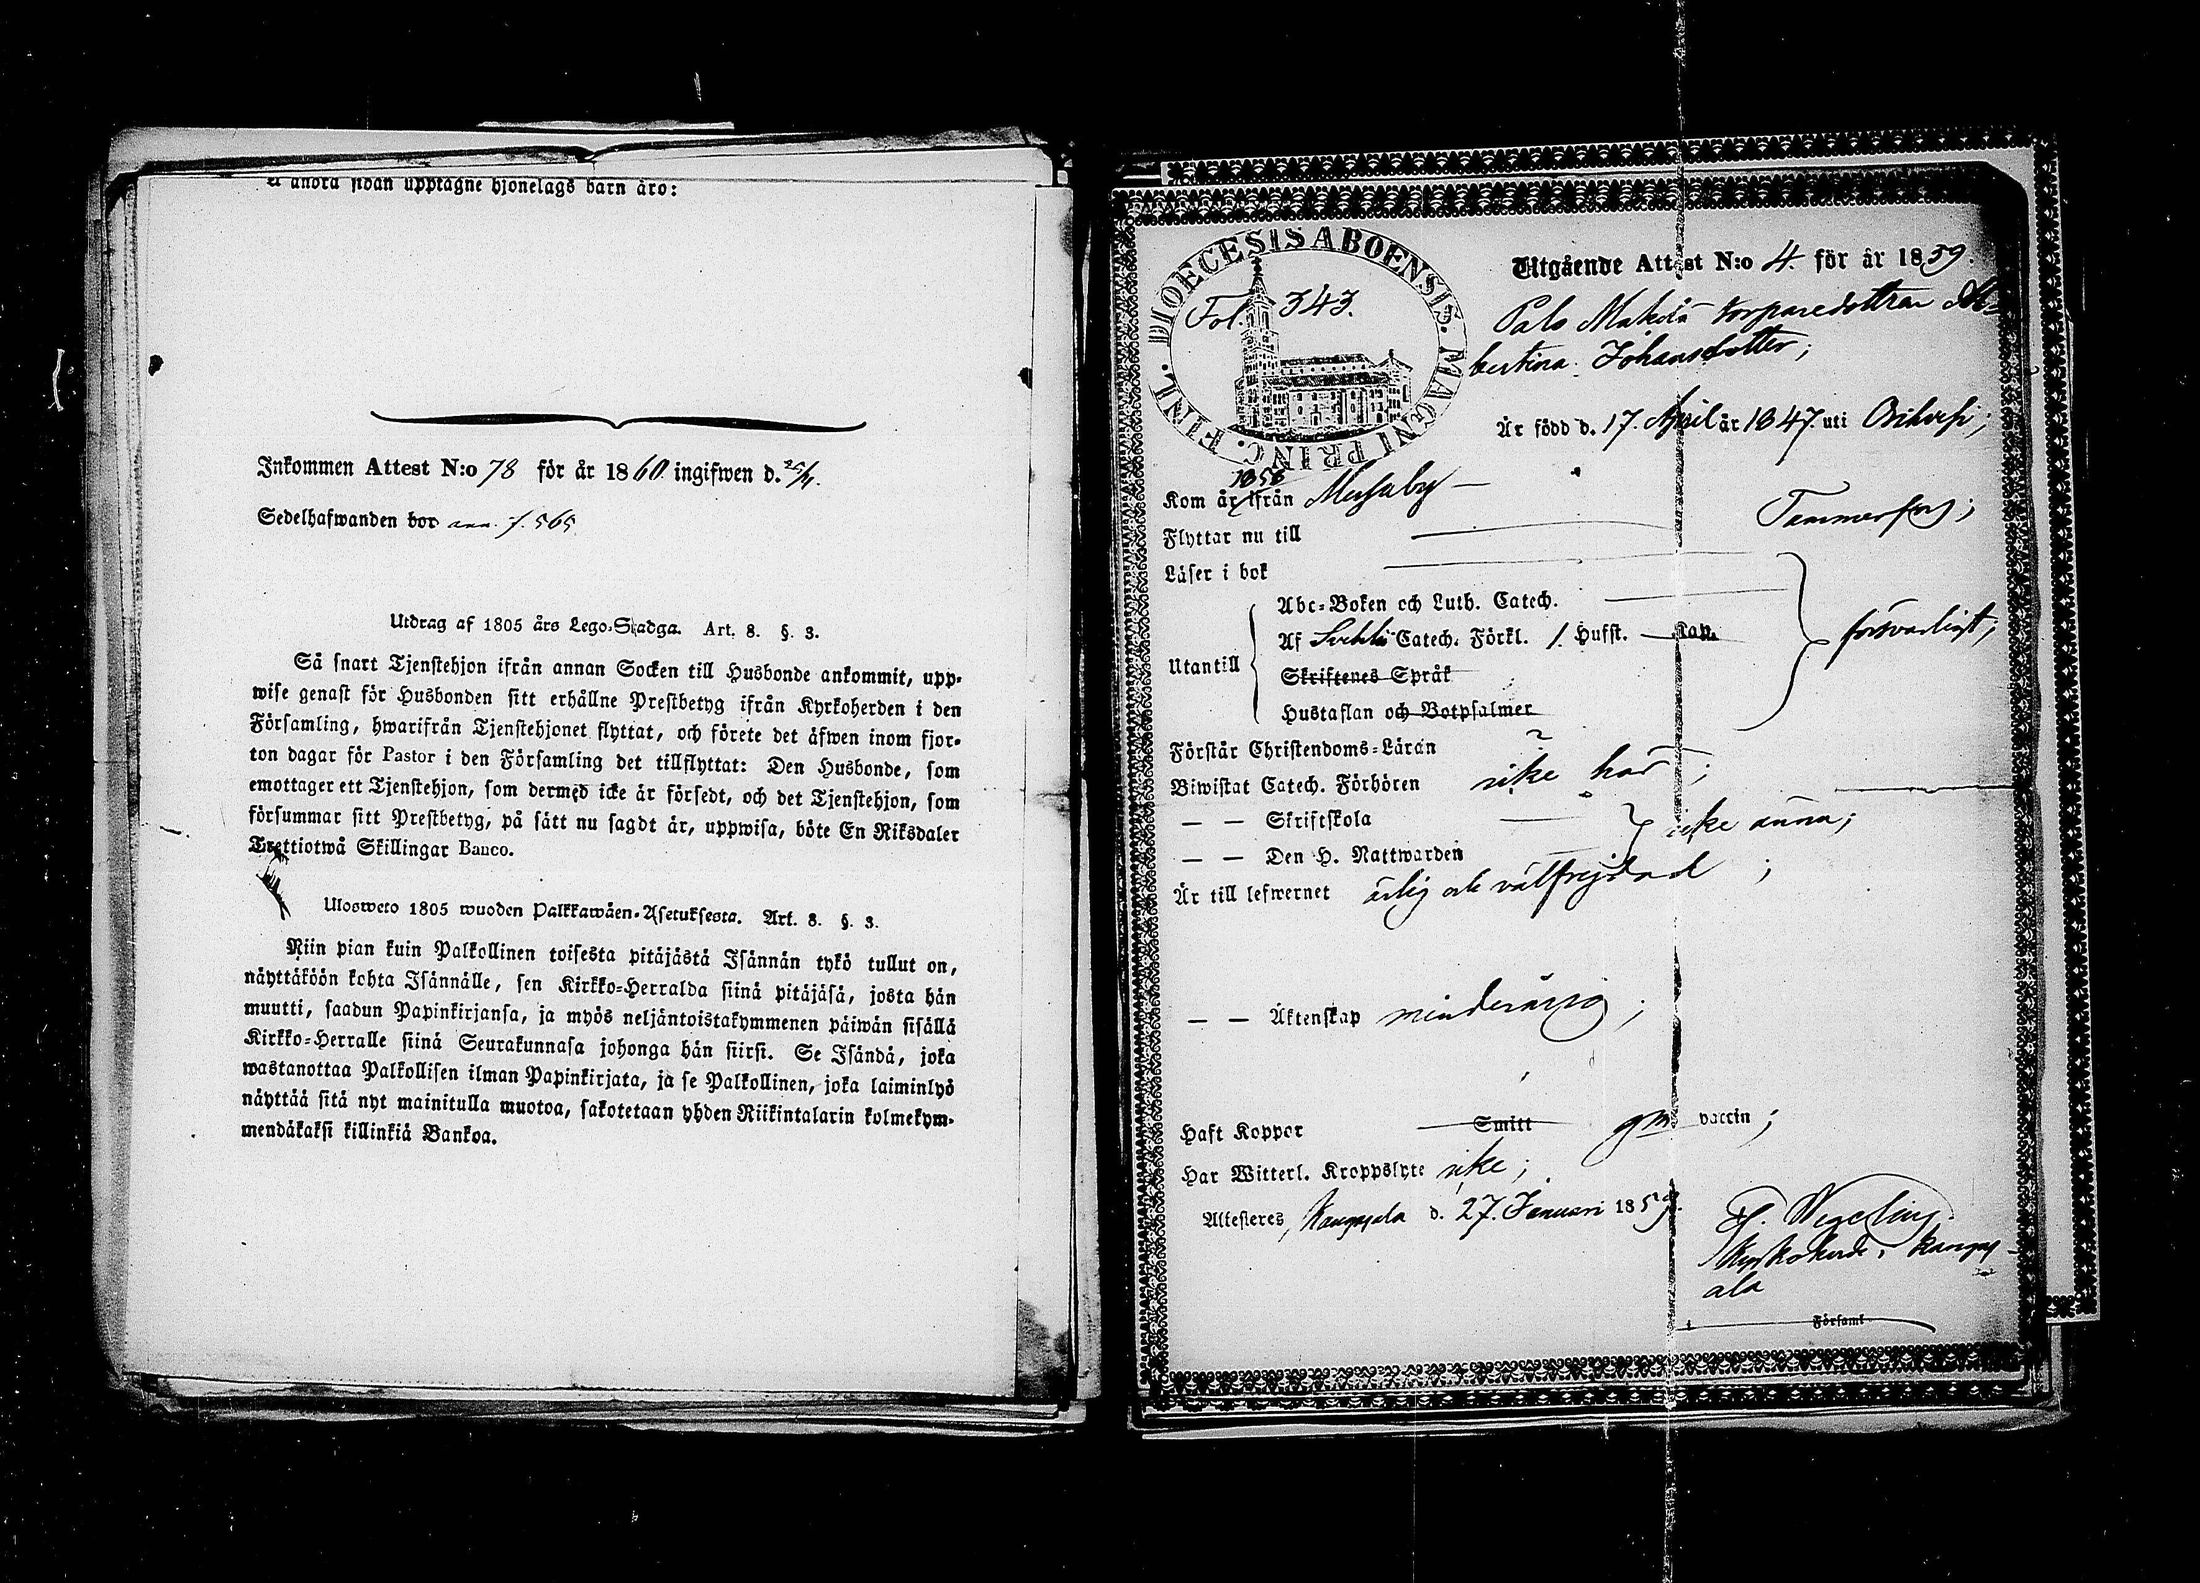 å andra sidan upptagne hjonelags barn äro:
Inkommen Attest N:o 78 för år 1860 ingifwen d. 25/4.
Sedelhafwanden bor ann. f. 565.
Utdrag af 1805 års Lego-Stadga. Art. 8. §. 3.
Så snart Tjenstehjon ifrån annan Socken till Husbonde ankommit, upp-
wise genast för Husbonden sitt erhållne Prestbetyg ifrån Kyrkoherden i den
Församling, hwarifrån Tjenstehjonet flyttat, och förete det äfwen inom fjor-
ton dagar för Pastor i den Församling det tillflyttat: Den Husbonde, som
emottager ett Tjenstehjon, som dermed icke är försedt, och det Tjenstehjon, som
försummar sitt Prestbetyg, på sätt nu sagdt är, uppwisa, böte En Riksdaler
Trettiotwå Skillingar Banco.
Ulosweto 1805 wuoden Palkkawäen-Asetuksesta. Art. 8. §. 3.
Niin pian kuin Palkollinen toisesta pitäjästä Isännän tykö tullut on,
näyttäköön kohta Isännälle, sen Kirkko-Herralda siinä pitäjäsä, josta hän
muutti, saadun Papinkirjansa, ja myös neljäntoistakymmenen päiwän sisällä
Kirkko-Herralle siinä Seurakunnasa johonga hän siirsi. Se Isändä, joka
wastanottaa Palkollisen ilman Papinkirjata, ja se Palkollinen, joka laiminlyö
näyttää sitä nyt mainitulla muotoa, sakotetaan yhden Riikintalarin kolmekym-
mendäkaksi killinkiä Bankoa.
FINL. DIOECESIS ABOENSIS. MAGNI PRINC.
Fol. 343.
Utgående Attest N:o 4. för år 1859.
Palo Mattila torparedottran Al-
bertina Johansdotter;
Är född d. 17. April år 1847. uti Orihvesi;
Kom år 1858 ifrån Messuby
Flyttar nu till Tammerfors;
Läser i bok
Abc-Boken och Luth. Catech.
Utantill Af Svebilii Catech. Förkl. 1. Hufst. Cap. försvarligt;
Skriftenes Språk
Hustaflan och Botpsalmer
Förstår Christendoms-Läran
Biwistat Catech. Förhören icke här;
— — Skriftskola
— — Den H. Nattwarden icke ännu;
Är till lefwernet ärlig och välfrejdad;
— — Äktenskap minderårig;
Haft Koppor Smitt gm vaccin;
Har Witterl. Kroppslyte icke;
Attesteres, Kangasala d. 27. Januari 1859.
Wegelius.
Kyrkoherde i Kangas-
ala
Församl.